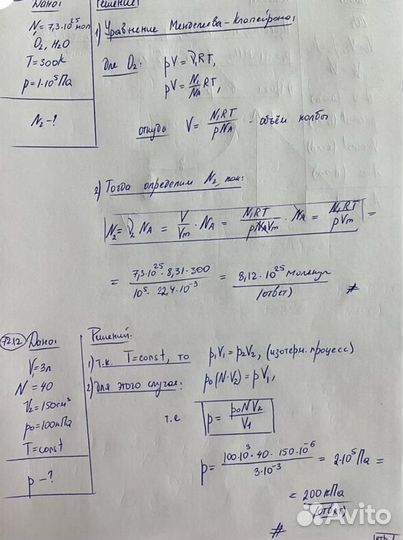 Дано:
N₁ = 7,3·10²⁵ мол
O₂, H₂O
T = 300K
p = 1·10⁵ Па
N₂ - ?
Решение:
1) Уравнение Менделеева-Клапейрона:
для O₂: pV = ν₁RT,
pV = N₁/Nₐ RT,
откуда V = N₁RT/pNₐ - объём колбы
2) Тогда определим N₂, как:
N₂ = ν₂ Nₐ = V/Vₘ · Nₐ = N₁RT/pNₐVₘ · Nₐ = N₁RT/pVₘ =
= 7,3·10²⁵ · 8,31 · 300/10⁵ · 22,4·10⁻³ = 8,12·10²⁵ молекул
(ответ)
#
7212
Дано:
V = 3л
N = 40
V₂ = 150см³
p₀ = 100кПа
T = const
p - ?
Решение:
1) т.к. T = const, то p₁V₁ = p₂V₂, (изотерм. процесс)
2) Для этого случая: p₀(N·V₂) = pV₁,
т.е p = p₀NV₂/V₁
p = 100·10³ · 40 · 150·10⁻⁶/3·10⁻³ = 2·10⁵ Па =
= 200кПа
(ответ)
#
Avito